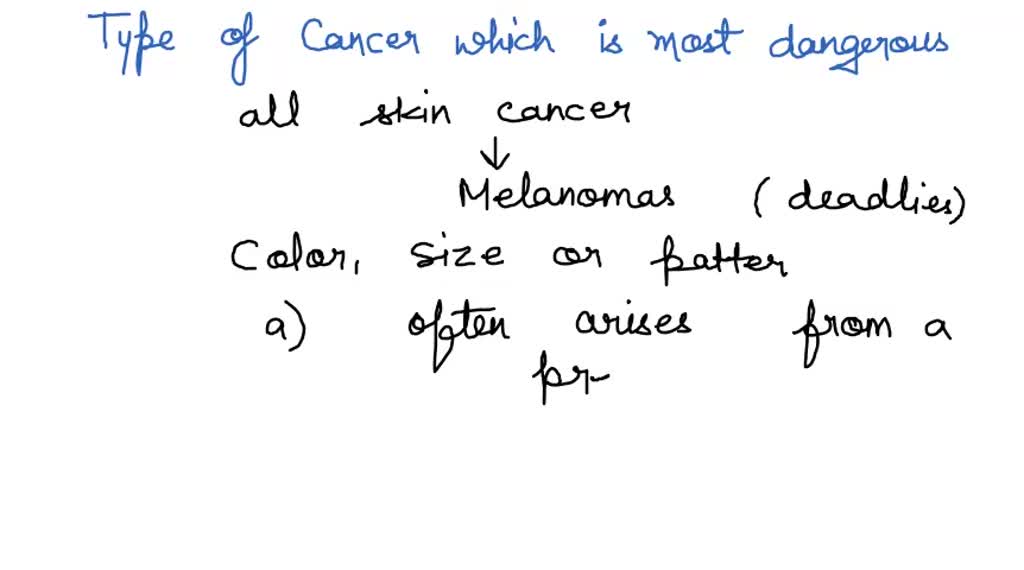 Type of Cancer which is most dangerous
all skin cancer
↓
Melanomas (deadlies)
Color, size or patter
a) often arises from a
pr